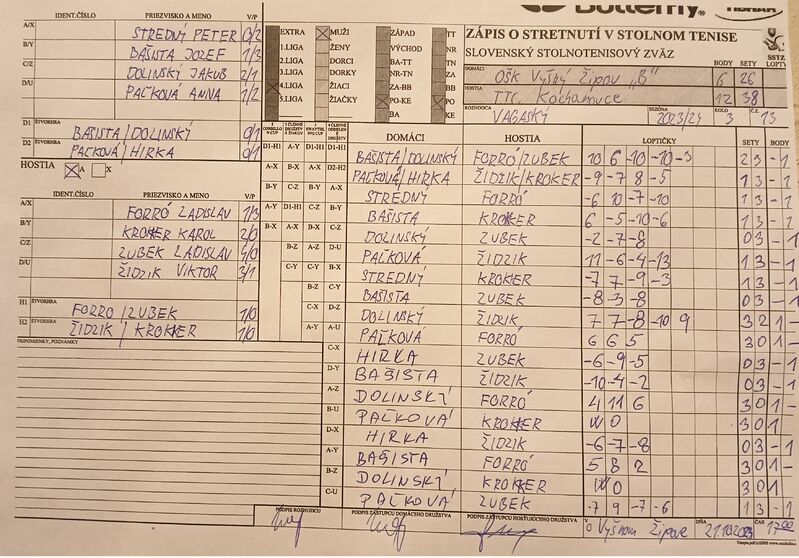 Butterfly
IDENT.ČÍSLO PRIEZVISKO A MENO V/P
A/X STREDNÝ PETER 0/2
B/Y BAŠISTA JOZEF 1/3
C/Z DOLINSKÝ JAKUB 2/1
D/U PAĽKOVÁ ANNA 1/2
D1 ŠTVORHRA BAŠISTA/DOLINSKÝ 0/1
D2 ŠTVORHRA PAĽKOVÁ/HIRKA 0/1
HOSTIA A X
IDENT.ČÍSLO PRIEZVISKO A MENO V/P
A/X FORRÓ LADISLAV 1/3
B/Y KROKKER KAROL 2/0
C/Z ZUBEK LADISLAV
D/U ŽIDZIK VIKTOR 3/1
H1 ŠTVORHRA FORRO/ZUBEK 1/0
H2 ŠTVORHRA ŽIDZIK/KROKKER 1/0
PRIPOMIENKY, POZNÁMKY
EXTRA MUŽI ZÁPAD TT
1.LIGA ŽENY VÝCHOD NR
2.LIGA DORCI BA-TT TN
3.LIGA DORKY NR-TN ZA
4.LIGA ŽIACI ZA-BB BB
5.LIGA ŽIAČKY PO-KE PO
BA KE
ZÁPIS O STRETNUTÍ V STOLNOM TENISE
SLOVENSKÝ STOLNOTENISOVÝ ZVÄZ
SSTZ
BODY SETY LOPTY
DOMÁCI OŠK VYŠNÝ ŽIPOV "B" 6 26
HOSTIA TTC Kochanovce 12 38
ROZHODCA VAGASKÝ SEZÓNA 2023/24 KOLO 3 Č.Z. 13
DOMÁCI HOSTIA LOPTIČKY SETY BODY
D1-H1 BAŠISTA/DOLINSKÝ FORRÓ/ZUBEK 10 6 -10 -10 -3 2 3 - 1
D2-H2 PAĽKOVÁ/HIRKA ŽIDZIK/KROKKER -9 -7 8 -5 1 3 - 1
A-X STREDNÝ FORRÓ -6 10 -7 -10 1 3 - 1
B-Y BAŠISTA KROKKER 6 -5 -10 -6 1 3 - 1
C-Z DOLINSKÝ ZUBEK -2 -7 -8 0 3 - 1
D-U PAĽKOVÁ ŽIDZIK 11 -6 -4 -13 1 3 - 1
STREDNÝ KROKKER -7 7 -9 -3 1 3 - 1
BAŠISTA ZUBEK -8 -3 -8 0 3 - 1
DOLINSKÝ ŽIDZIK 7 7 -8 -10 9 3 2 1 -
PAĽKOVÁ FORRÓ 6 6 5 3 0 1 -
C-X HIRKA ZUBEK -6 -9 -5 0 3 - 1
D-Y BAŠISTA ŽIDZIK -10 -4 -2 0 3 - 1
A-Z DOLINSKÝ FORRÓ 4 11 6 3 0 1 -
B-U PAĽKOVÁ KROKKER W O 3 0 1
D-X HIRKA ŽIDZIK -6 -7 -8 0 3 - 1
A-Y BAŠISTA FORRÓ 5 8 2 3 0 1 -
B-Z DOLINSKÝ KROKKER W O 3 0 1
C-U PAĽKOVÁ ZUBEK -7 9 -7 -6 1 3 - 1
PODPIS ROZHODCU PODPIS ZÁSTUPCU DOMÁCEHO DRUŽSTVA PODPIS ZÁSTUPCU HOSŤUJÚCEHO DRUŽSTVA V Vyšnom Žipove DŇA 21.10.2023 ČAS 17:00